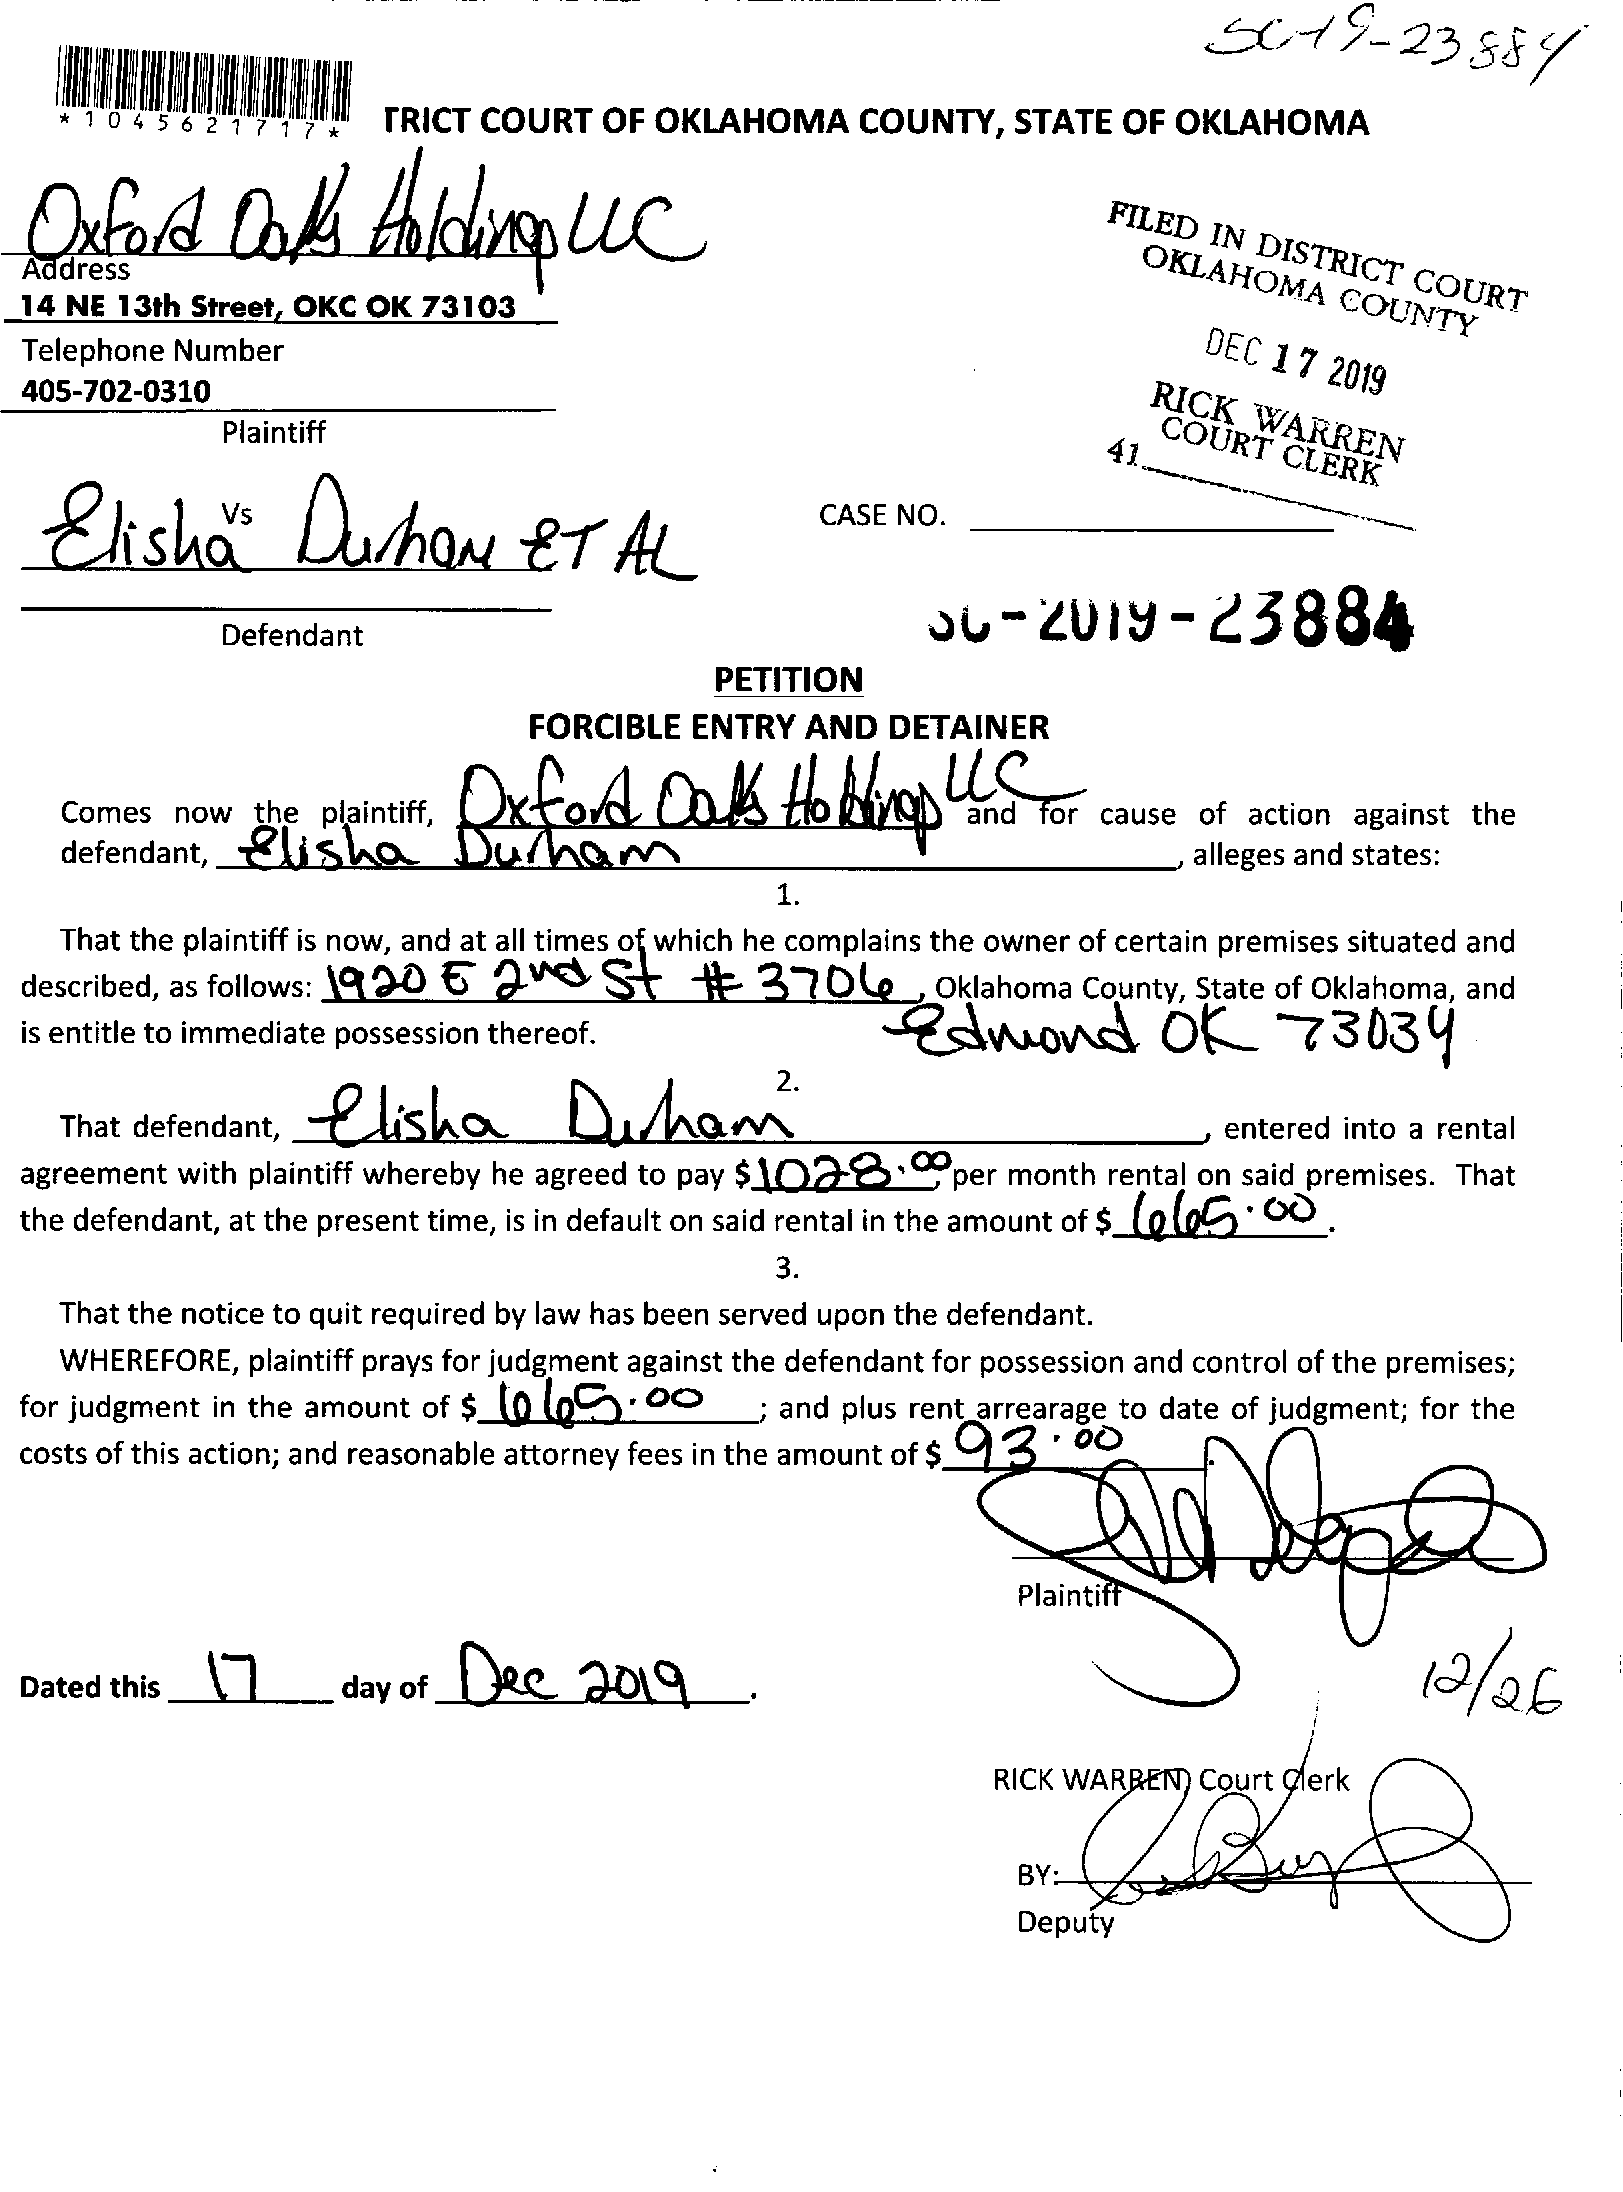 SC-19-23884
*1045621717*
TRICT COURT OF OKLAHOMA COUNTY, STATE OF OKLAHOMA
Oxford Oaks Holdings LLC
Address
14 NE 13th Street, OKC OK 73103
Telephone Number
405-702-0310
Plaintiff
FILED IN DISTRICT COURT
OKLAHOMA COUNTY
DEC 17 2019
RICK WARREN
COURT CLERK
41
Vs
Elisha Durham ET AL
CASE NO.
Defendant
SC-2019-23884
PETITION
FORCIBLE ENTRY AND DETAINER
Comes now the plaintiff, Oxford Oaks Holdings LLC and for cause of action against the
defendant, Elisha Durham, alleges and states:
1.
That the plaintiff is now, and at all times of which he complains the owner of certain premises situated and
described, as follows: 1920 E 2nd St # 3706, Oklahoma County, State of Oklahoma, and
is entitle to immediate possession thereof. Edmond OK 73034
2.
That defendant, Elisha Durham, entered into a rental
agreement with plaintiff whereby he agreed to pay $1028.00 per month rental on said premises. That
the defendant, at the present time, is in default on said rental in the amount of $ 665.00.
3.
That the notice to quit required by law has been served upon the defendant.
WHEREFORE, plaintiff prays for judgment against the defendant for possession and control of the premises;
for judgment in the amount of $ 665.00; and plus rent arrearage to date of judgment; for the
costs of this action; and reasonable attorney fees in the amount of $ 93.00.
Plaintiff
Dated this 17 day of Dec 2019.
12/26
RICK WARREN, Court Clerk
BY:
Deputy